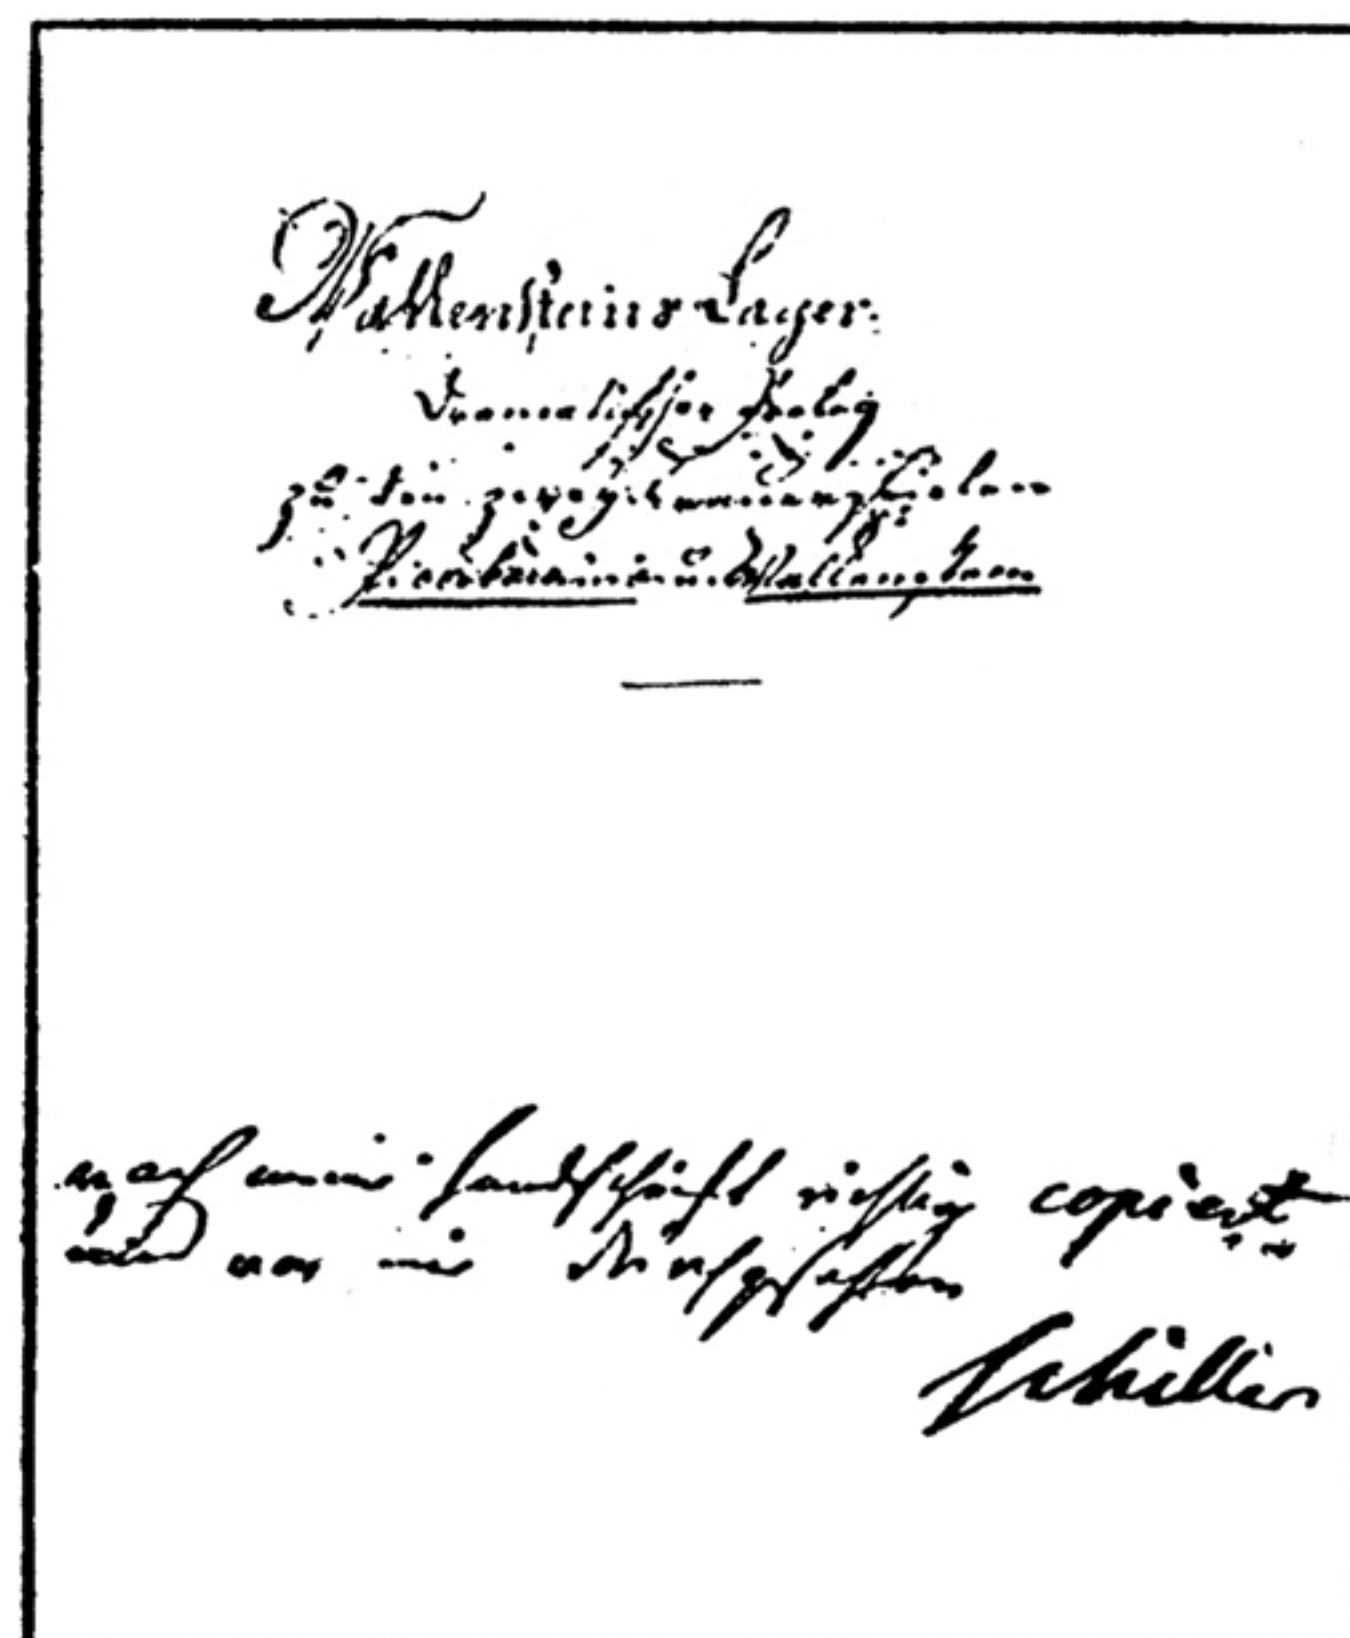 Wallensteins Lager.
Dramatischer Prolog
zu den zwey Trauerspielen
Piccolomini und Wallenstein
nach meiner Handschrift richtig copiert
und von mir durchgesehen
Schiller